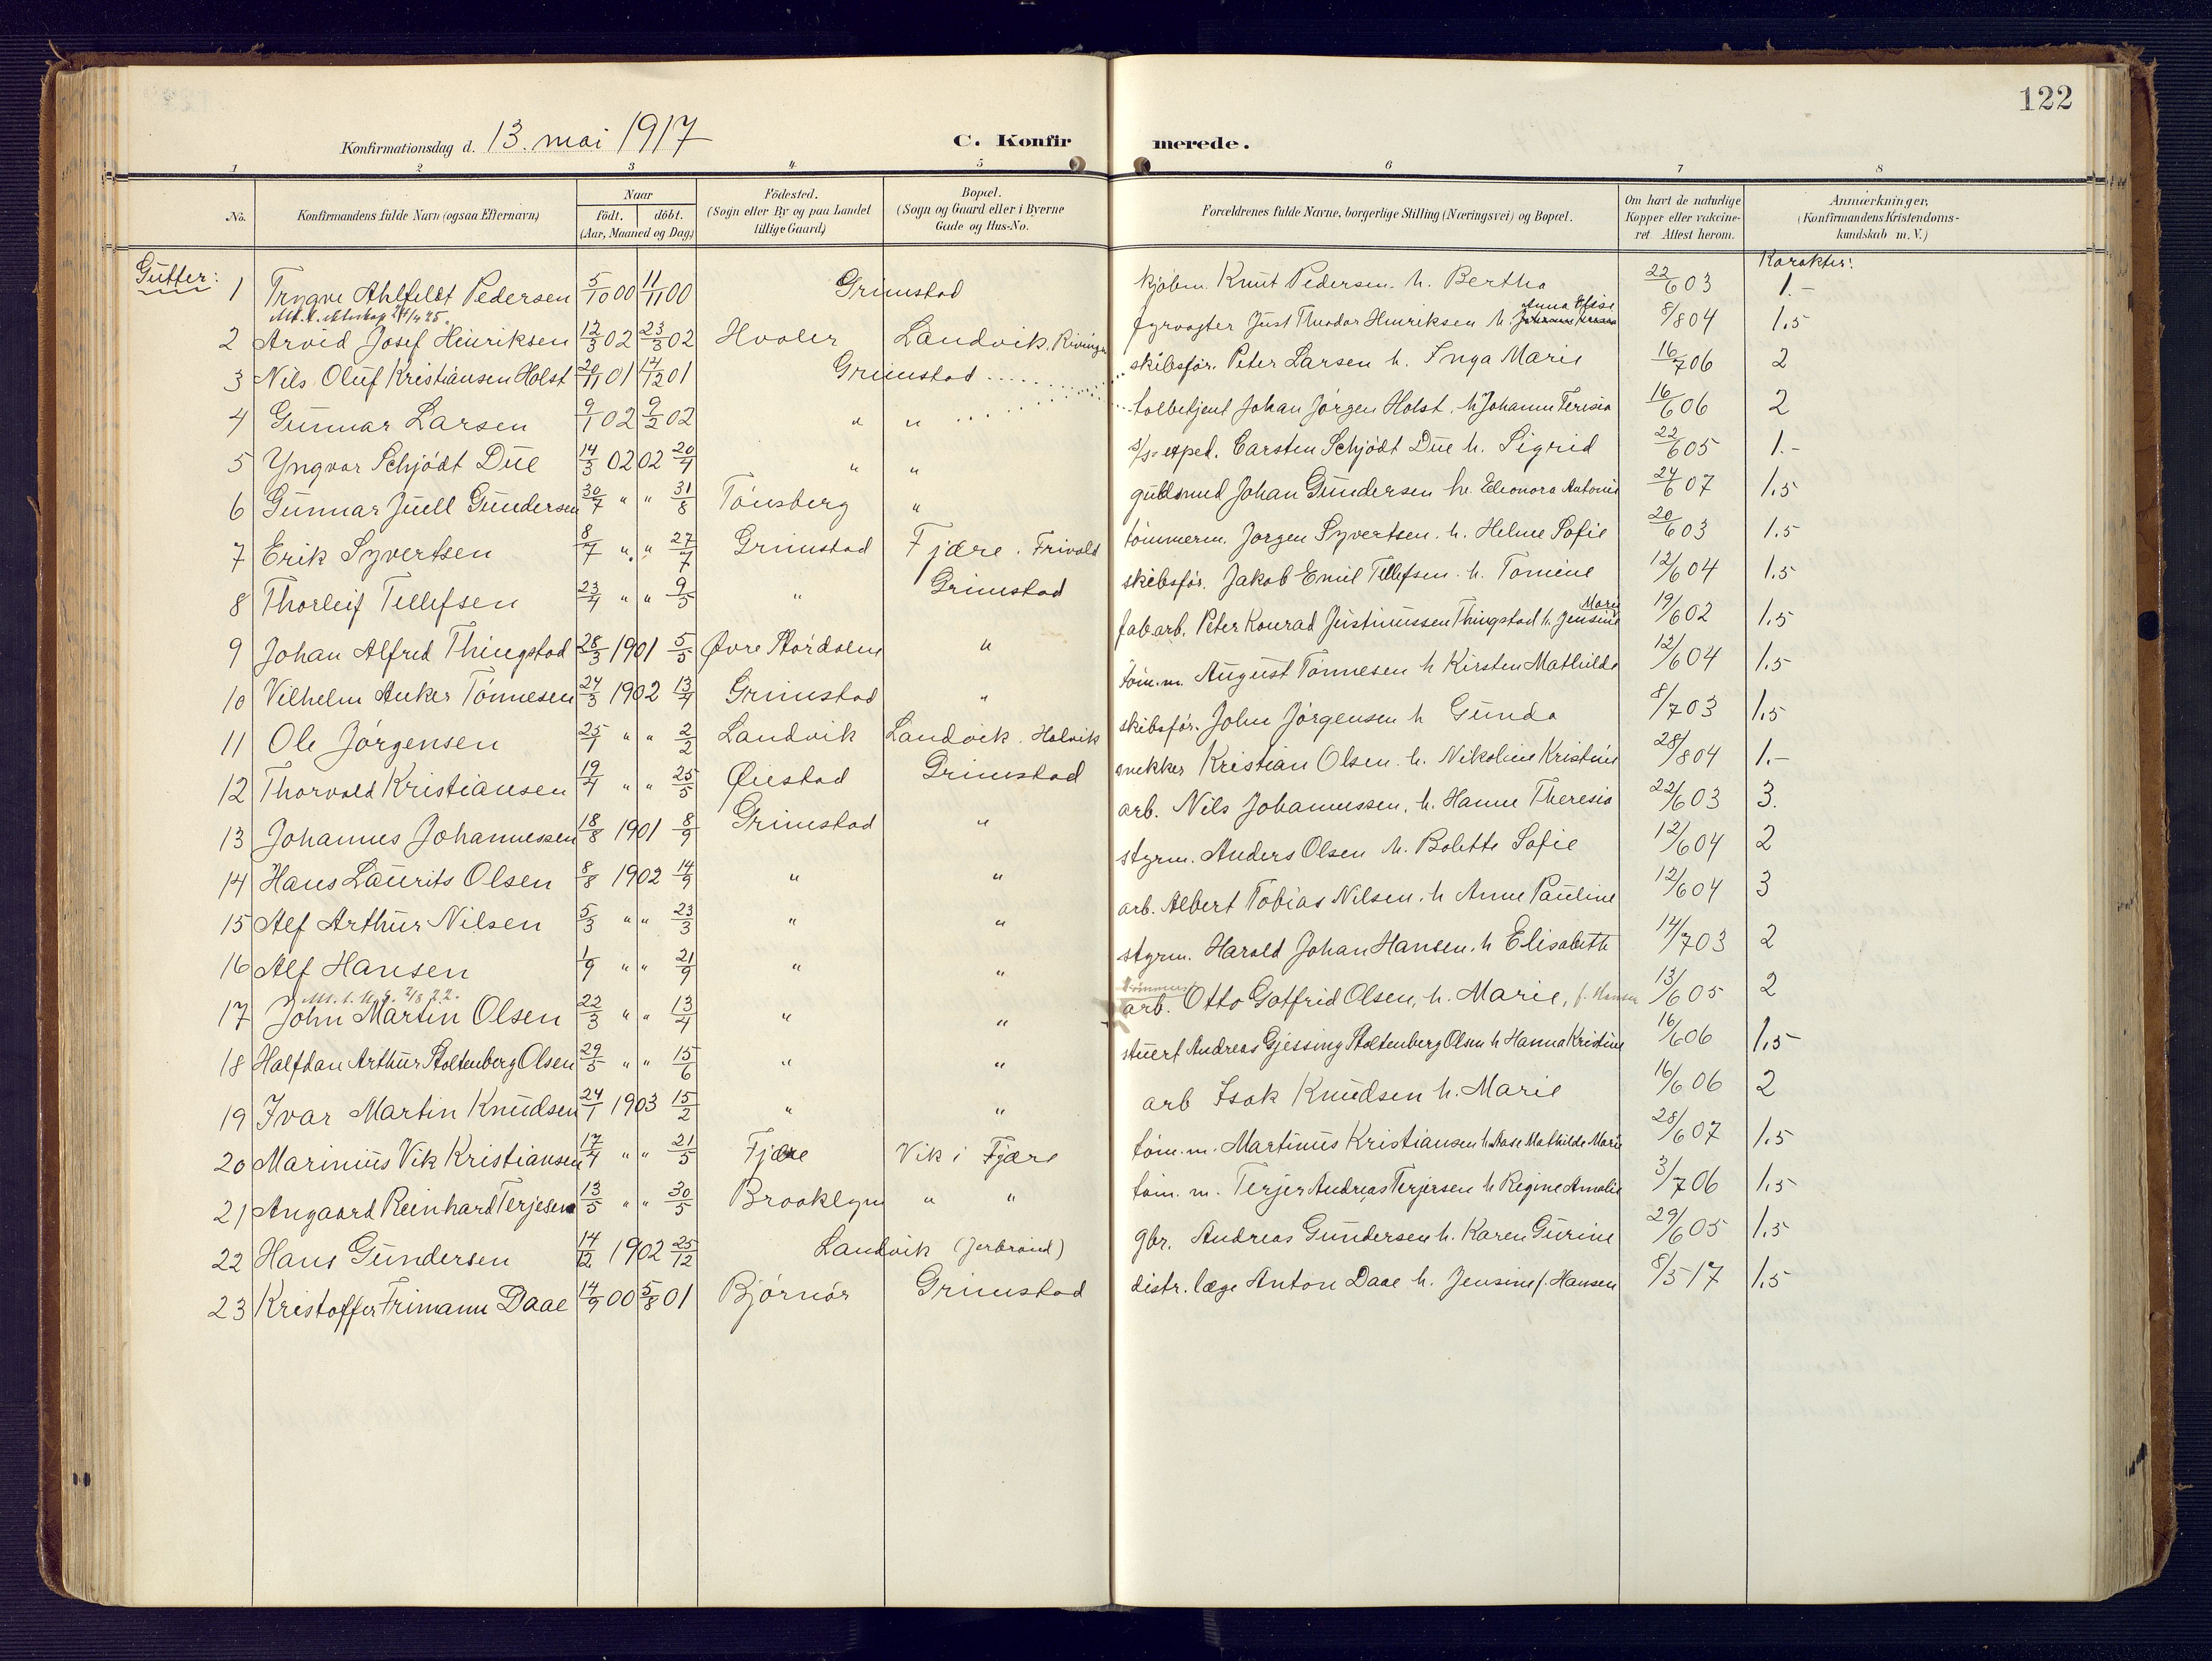 122
Konfirmationsdag d. 13. mai 1917 C. Konfirmerede.
1 2 3 4 5 6 7 8
No. Konfirmandens fulde Navn (ogsaa Efternavn) Naar födt. döbt. (Aar, Maaned og Dag) Födested. (Sogn eller By og paa Landet tillige Gaard) Bopæl. (Sogn og Gaard eller i Byerne Gade og Hus-No. Forældrenes fulde Navne, borgerlige Stilling (Næringsvei) og Bopæl. Om havt de naturlige Kopper eller vakcineret Attest herom. Anmærkninger. (Konfirmandens Kristendomskundskab m.V.)
Gutter: Karakter:
1 Trygve Ahlfeldt Pedersen 5/10 00 11/11 00 Grimstad kjøbm. Knut Pedersen h. Bertha 22/6 03 1.-
2 Arvid Josef Henriksen 12/3 02 23/3 02 Hvaler Landvik. fyrvogter Just Theodor Henriksen h. Anna Elise 8/8 04 1.5
3 Nils Oluf Kristiansen Holst 20/11 01 14/12 01 Grimstad skibsfør. Peter Larsen h. Inga Marie 16/7 06 2
4 Gunnar Larsen 9/1 02 9/2 02 " " tolbetjent Johan Jørgen Holst. h Johanne Teresia 16/6 06 2
5 Yngvar Schjödt Due 14/3 02 02 20/4 " " s/s-exped. Carsten Schjödt Due h. Sigrid 22/6 05 1.-
6 Gunnar Juell Gundersen 30/7 " " 31/8 Tönsberg " guldsmed Johan Gundersen h. Eleonora Antonie 24/6 07 1.5
7 Erik Syvertsen 8/7 " " 27/7 Grimstad Fjære. Frivold tömmerm. Jørgen Syvertsen. h. Helene Sofie 20/6 03 1.5
8 Thorleif Tellefsen 23/4 " " 9/5 " Grimstad skibsfør. Jakob Emil Tellefsen. h. Tomine 12/6 04 1.5
9 Johan Alfred Thingstad 28/3 1901 5/5 Øvre Stördalen " fab.arb. Peter Konrad Justinussen Thingstad h. Jensine Marie 19/6 02 1.5
10 Vilhelm Anker Tönnesen 24/3 1902 13/4 Grimstad " töm.m. August Tönnesen h Kirsten Mathilde 12/6 04 1.5
11 Ole Jörgensen 25/1 " " 2/2 Landvik Landvik. Holvik skibsför. John Jörgensen h Gunda 8/7 03 1.5
12 Thorvald Kristiansen 19/4 " " 25/5 Øiestad Grimstad snekker Kristian Olsen h. Nikoline Kristine 28/8 04 1.-
13 Johannes Johannessen 18/8 1901 8/9 Grimstad " arb. Nils Johannessen, h. Hanne Theresia 22/6 03 3.
14 Hans Laurits Olsen 8/8 1902 14/9 " " styrm. Anders Olsen h. Bolette Sofie 12/6 04 2
15 Alf Arthur Nilsen 5/3 " " 23/3 " " arb. Albert Tobias Nilsen. h Anne Pauline 12/6 04 3
16 Alf Hansen 1/9 " " 21/9 " " styrm. Harald Johan Hansen. h Elisabeth 14/7 03 2
17 John Martin Olsen 22/3 " " 13/4 " " arb. Otto Gotfrid Olsen, h. Marie, f. Hansen 13/6 05 2
18 Halfdan Arthur Stoltenberg Olsen 29/5 " " 15/6 " " stuert Andreas Gjessing Stoltenberg Olsen h Hanna Kristine 16/6 06 1.5
19 Ivar Martin Knudsen 24/1 1903 15/2 " " arb Isak Knudsen h. Marie 16/6 06 2
20 Marinius Vik Kristiansen 17/4 " " 21/5 Fjære Vik i Fjære töm.m. Martinus Kristiansen h Aase Mathilde Marie 28/6 07 1.5
21 Angaard Reinhard Terjesen 13/5 " " 30/5 Brooklyn " " töm. m. Terjer Andreas Terjersen h Regine Amalie 3/7 06 1.5
22 Hans Gundersen 14/12 1902 25/12 Landvik gbr. Andreas Gundersen h. Karen Gurine 29/6 05 1.5
23 Kristoffer Frimann Daae 14/9 00 5/8 01 Bjørnör Grimstad distr. læge Anton Daae h. Jensine f. Hansen 8/5 17 1.5